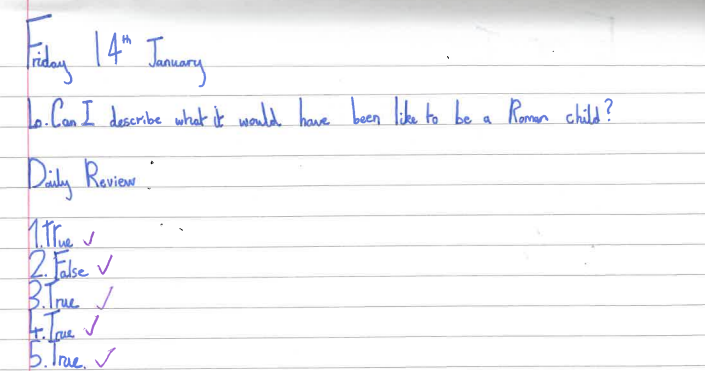 Friday 14th January
Lo. Can I describe what it would have been like to be a Roman child?
Daily Review.
1. True ✓
2. False ✓
3. True ✓
4. True ✓
5. True. ✓